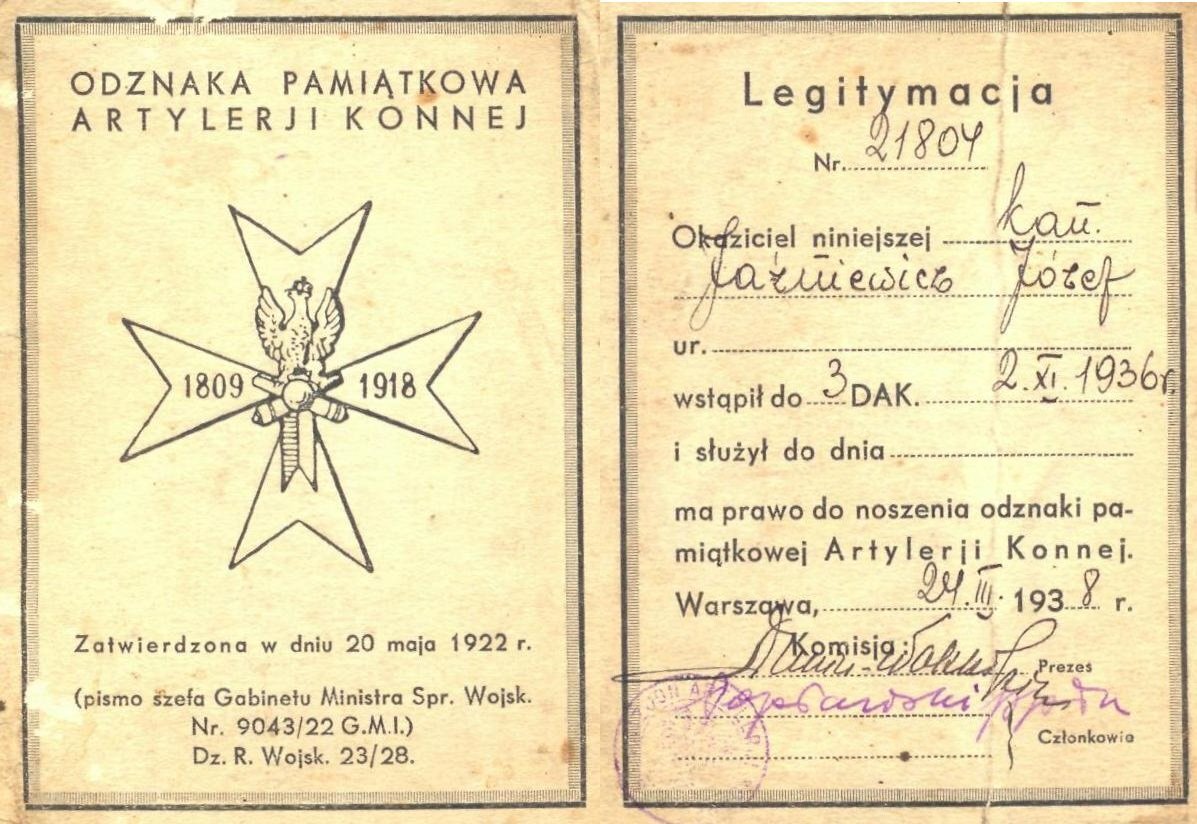 ODZNAKA PAMIĄTKOWA
ARTYLERJI KONNEJ
1809 1918
Zatwierdzona w dniu 20 maja 1922 r.
(pismo szefa Gabinetu Ministra Spr. Wojsk.
Nr. 9043/22 G.M.I.)
Dz. R. Wojsk. 23/28.
Legitymacja
Nr. 21804
Okaziciel niniejszej kan.
Jaźniewicz Józef
ur.
wstąpił do 3 DAK. 2.XI.1936r.
i służył do dnia
ma prawo do noszenia odznaki pa-
miątkowej Artylerji Konnej.
Warszawa, 24.III. 1938 r.
Komisja:
Prezes
Członkowie